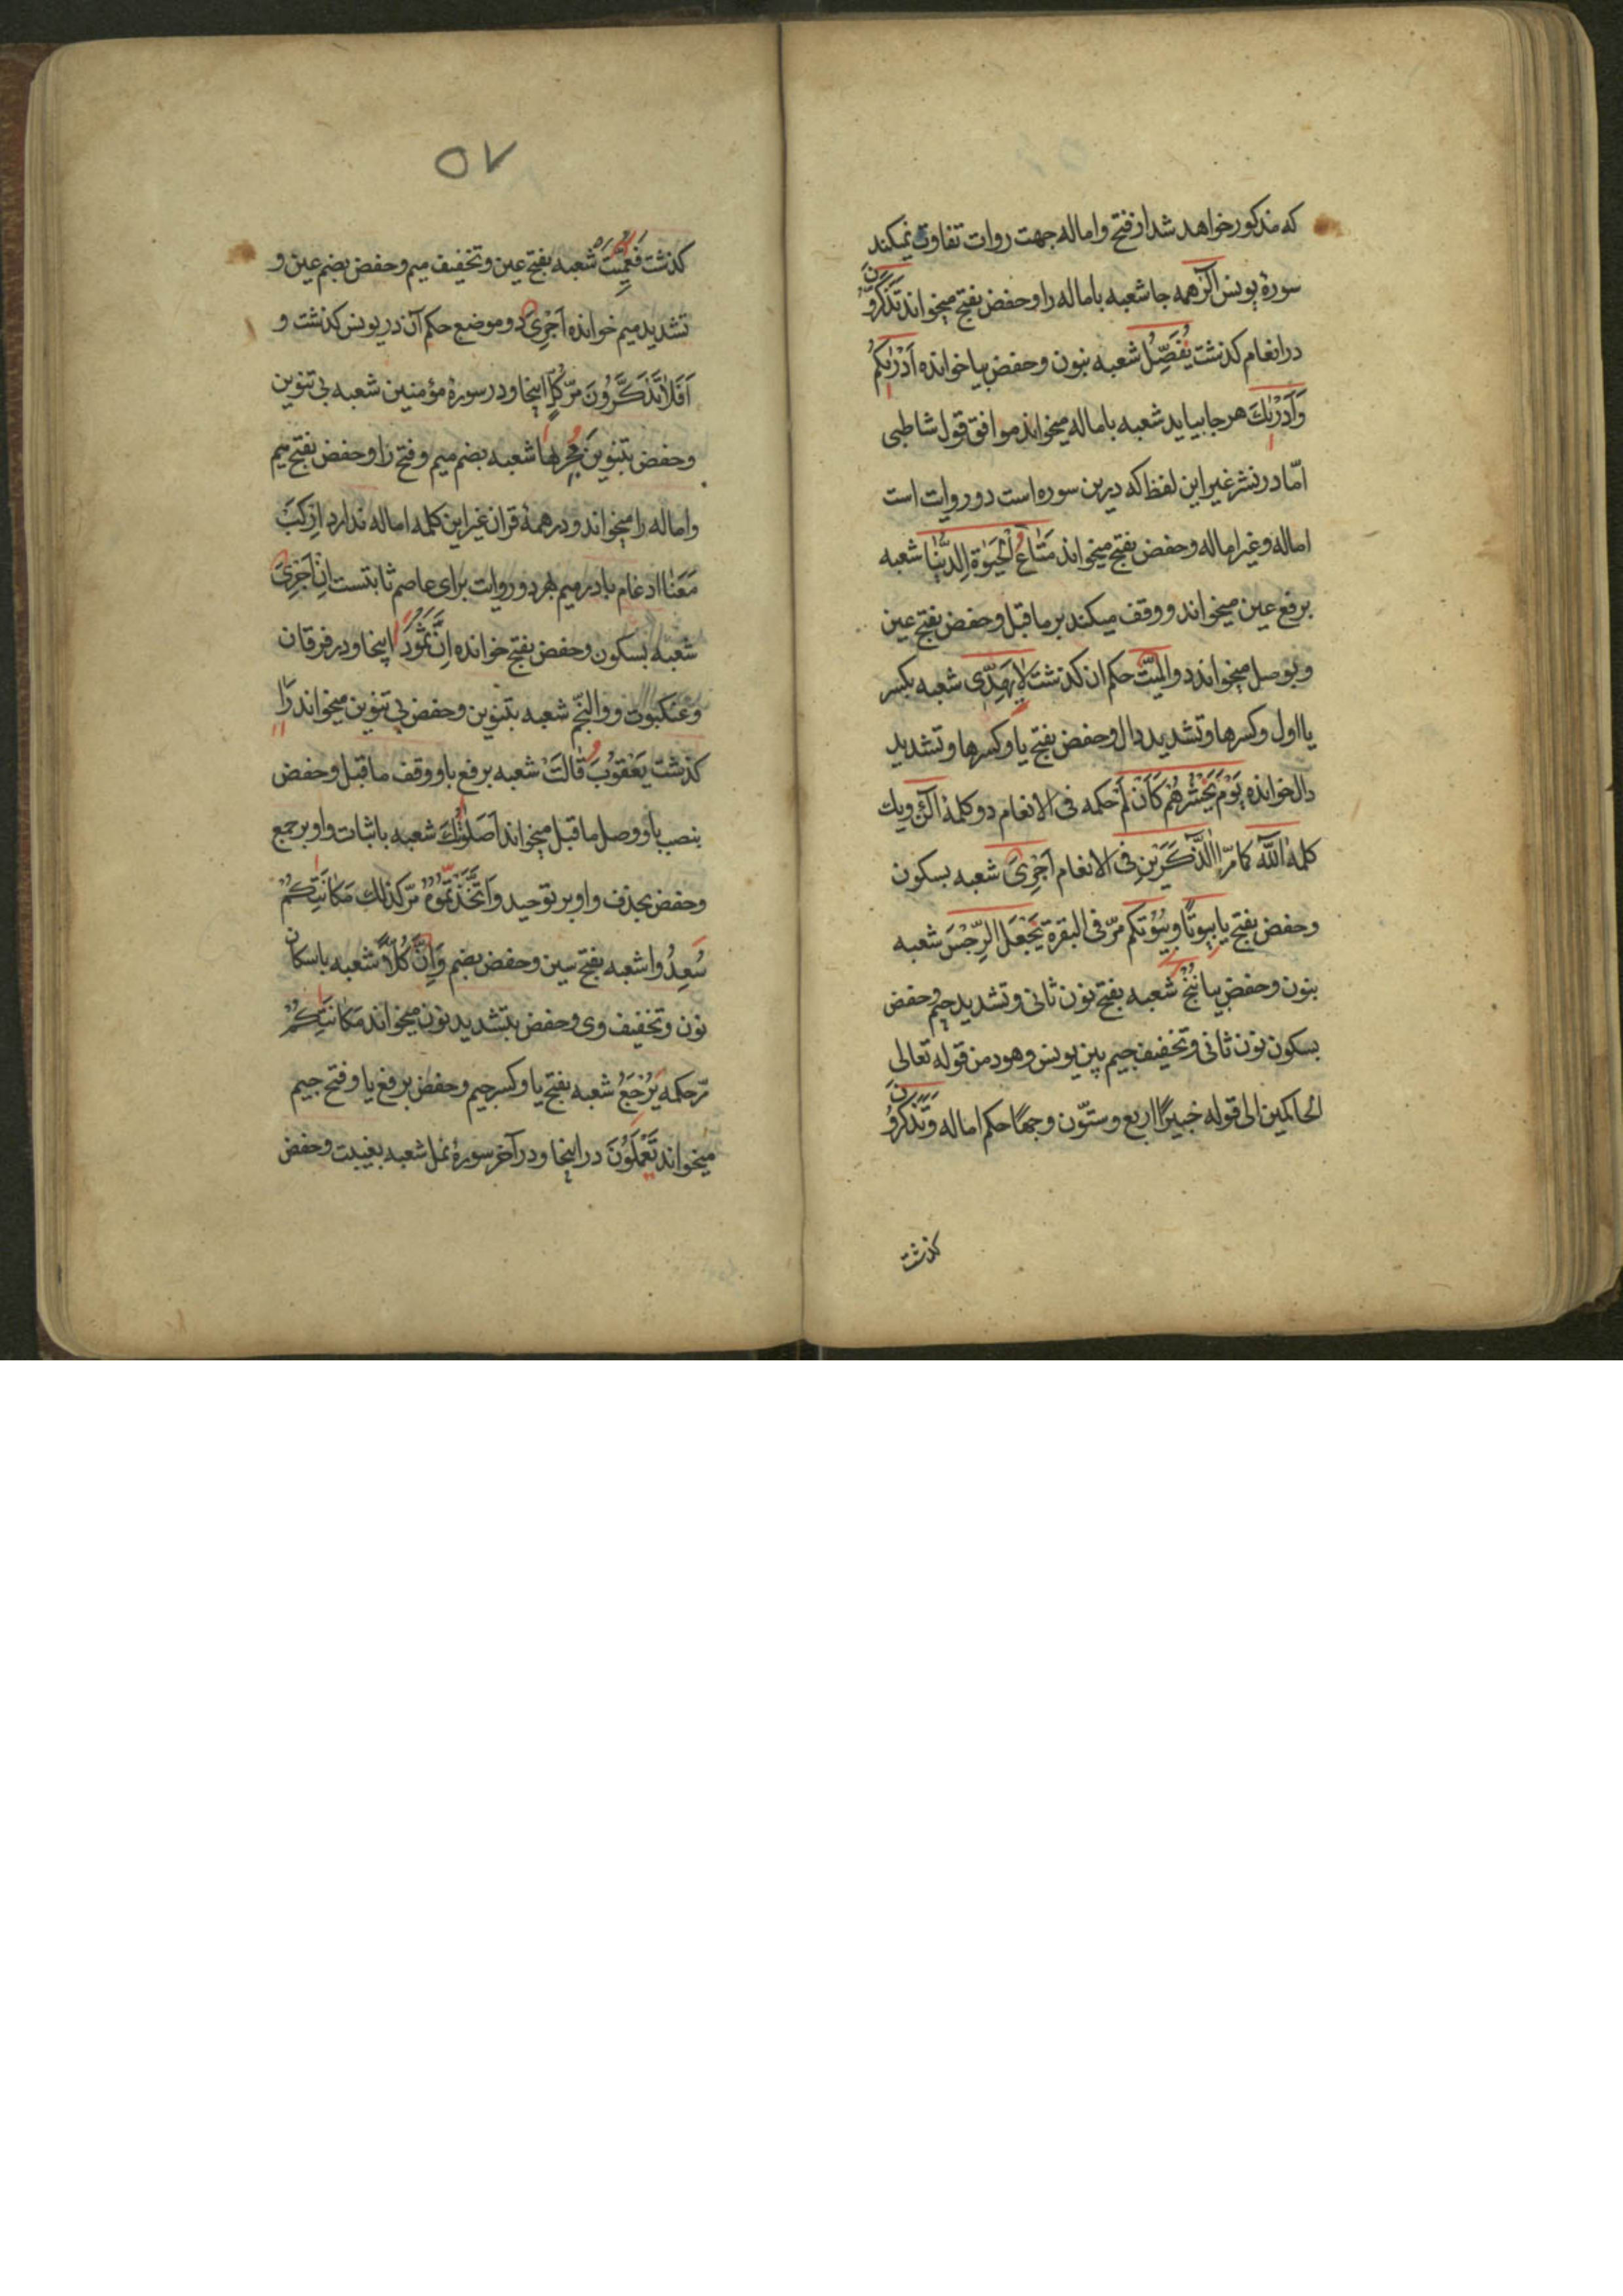 که مذکور خواهد شد از فتح و اماله جهت روات تفاوت نمیکند
سورة یونس الٓر همه جا شعبه باماله را و حفص بفتح میخواند تَذَكَّرُونَ
در انعام کذشت یُفَصِّلُ شعبه بنون و حفص بیا خوانده اَدْرٰیكُمْ
وَاَدْرٰیكَ هر جا بیاید شعبه باماله میخواند موافق قول شاطبی
امّا در نشر غیر این لفظ که درین سوره است دو روایت است
اماله و غیر اماله و حفص بفتح میخواند مَتَاعُ الْحَیٰوةِ الدُّنْیٰا شعبه
برفع عین میخواند و وقف میکند بر ما قبل و حفص بفتح عین
و بوصل میخواند و المیّت حکم ان کذشت لایَهِدّی شعبه بکسر
یا اول و کسر ها و تشدید دال و حفص بفتح یا و کسر ها و تشدید
دال خوانده یَوْمَ یَحْشُرُهُمْ كَاَنْ لَمْ حکمه فی الانعام دو کلمهٔ آلْئٰنَ و یك
کلمهٔ آللّه کما مرّ آالذَّكَرَیْنِ فی الانعام اَجْرِیَ شعبه بسکون
و حفص بفتح یا بیوتًا و بیُوتكم مرّ فی البقرة یَجْعَلُ الرِّجْسَ شعبه
بنون و حفص بیا نُنْجِ شعبه بفتح نون ثانی و تشدید جیم و حفص
بسکون نون ثانی و تخفیف جیم بین یونس و هود من قوله تعالی
الحاکمین الی قوله خبیرًا اربع و ستّون وجهًا حکم اماله و تَذَكَّرُونَ
کذشت
٥٧
کذشت فَعُمِّیَتْ شعبه بفتح عین و تخفیف میم و حفص بضم عین و
تشدید میم خوانده اَجْرِیَ دو موضع حکم آن در یونس کذشت و
اَفَلاٰ تَذَكَّرُونَ مرّ كُلٍّ اینجا و در سورهٔ مؤمنین شعبه بی تنوین
و حفص بتنوین مَجْرٰیها شعبه بضم میم و فتح را و حفص بفتح میم
و اماله را میخواند و در همهٔ قران غیر این کلمه اماله ندارد اِرْكَبْ
مَعَنٰا ادغام با در میم بهر دو روایت برای عاصم ثابتست اِنْ اَجْرِیَ
شعبه بسکون و حفص بفتح خوانده اِنَّ ثَمُودَ اینجا و در فرقان
و عنکبوت و و النجم شعبه بتنوین و حفص بی تنوین میخواند رَاٰ
کذشت یَعْقُوبَ قٰالَتْ شعبه برفع با و وقف ما قبل و حفص
بنصب با و وصل ما قبل میخواند اَصَلٰوتُكَ شعبه باثبات واو بر جمع
و حفص بحذف واو بر توحید وَاتَّخَذْتُمُوهُ مرّ کذلك مَكٰانَتِكُمْ
سُعِدُوا شعبه بفتح سین و حفص بضم وَاِنَّ كُلاًّ شعبه باسکان
نون و تخفیف وی و حفص بتشدید نون میخواند مَكٰانَتِكُمْ
مرّ حکمه یَرْجِعُ شعبه بفتح یا و کسر جیم و حفص برفع یا و فتح جیم
میخواند تَعْمَلُونَ در اینجا و در آخر سورهٔ نمل شعبه بغیبت و حفص